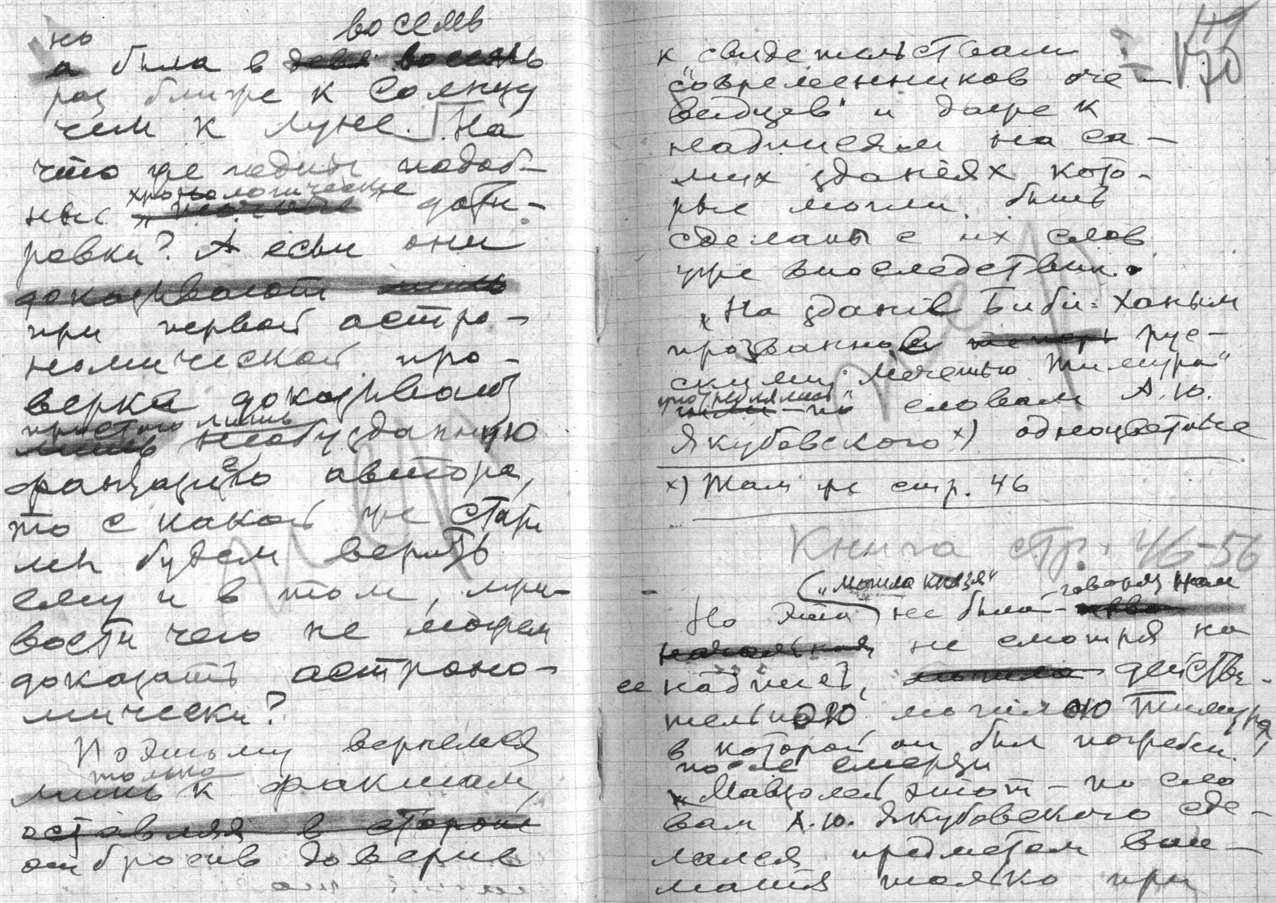 но восемь
а была в девя восемь
раз ближе к Солнцу
чем к луне. На
что же годит подоб-
хронологические
ные дати-
ровки? А если они
доказывают лишь
при первой астро-
номической про-
верке доказывают
простого лишь
лишь необузданную
фантазию автора,
то с какой же стати
мы будем верить
ему и в том, мри-
вости чего не можем
доказать астроно-
мически?
Поэтому вернемся
только
лишь к фактам,
оставляя в стороне
отбросив доверие
119
170
к свидетельствам
"современников оче-
видцев" и даже к
надписям на са-
мих зданиях кото-
рые могли быть
сделаны с их слов
уже впоследствии.
"На здание Биби-Ханым
прозванное теперь рус-
скими "мечетью Тимура"
употреблялись
по словам А.Ю.
Якубовского х) одноцветные
х) Там же стр. 46
Книга стр. 46-56
"могила князя" говорят нам
Но эта не была
начальная не смотря на
ее надпись, могила действи-
тельною могилою Тимура,
в которой он был погребен
после смерти
"Мавзолей этот – по сло
вам А.Ю. Якубовского сде-
лался предметом вни-
мания только при